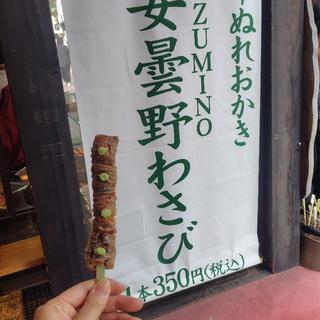 ぬれおかき
ZUMINO
安曇野わさび
1本350円(税込)